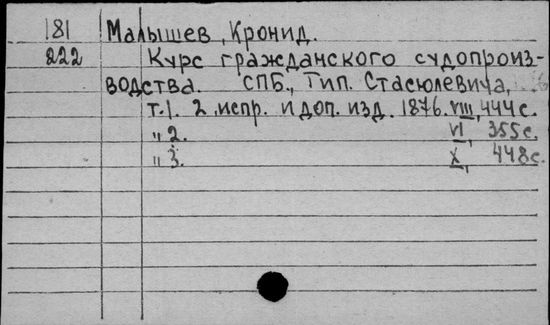 181 Малышев, Кронид.
222 Курс гражданского судопроиз-
водства. СПБ., Тип. Стасюлевича,
т.1. 2 испр. и доп. изд. 1876. VIII, 444 с.
„ 2. VI, 355 с.
„ 3. X, 448 с.